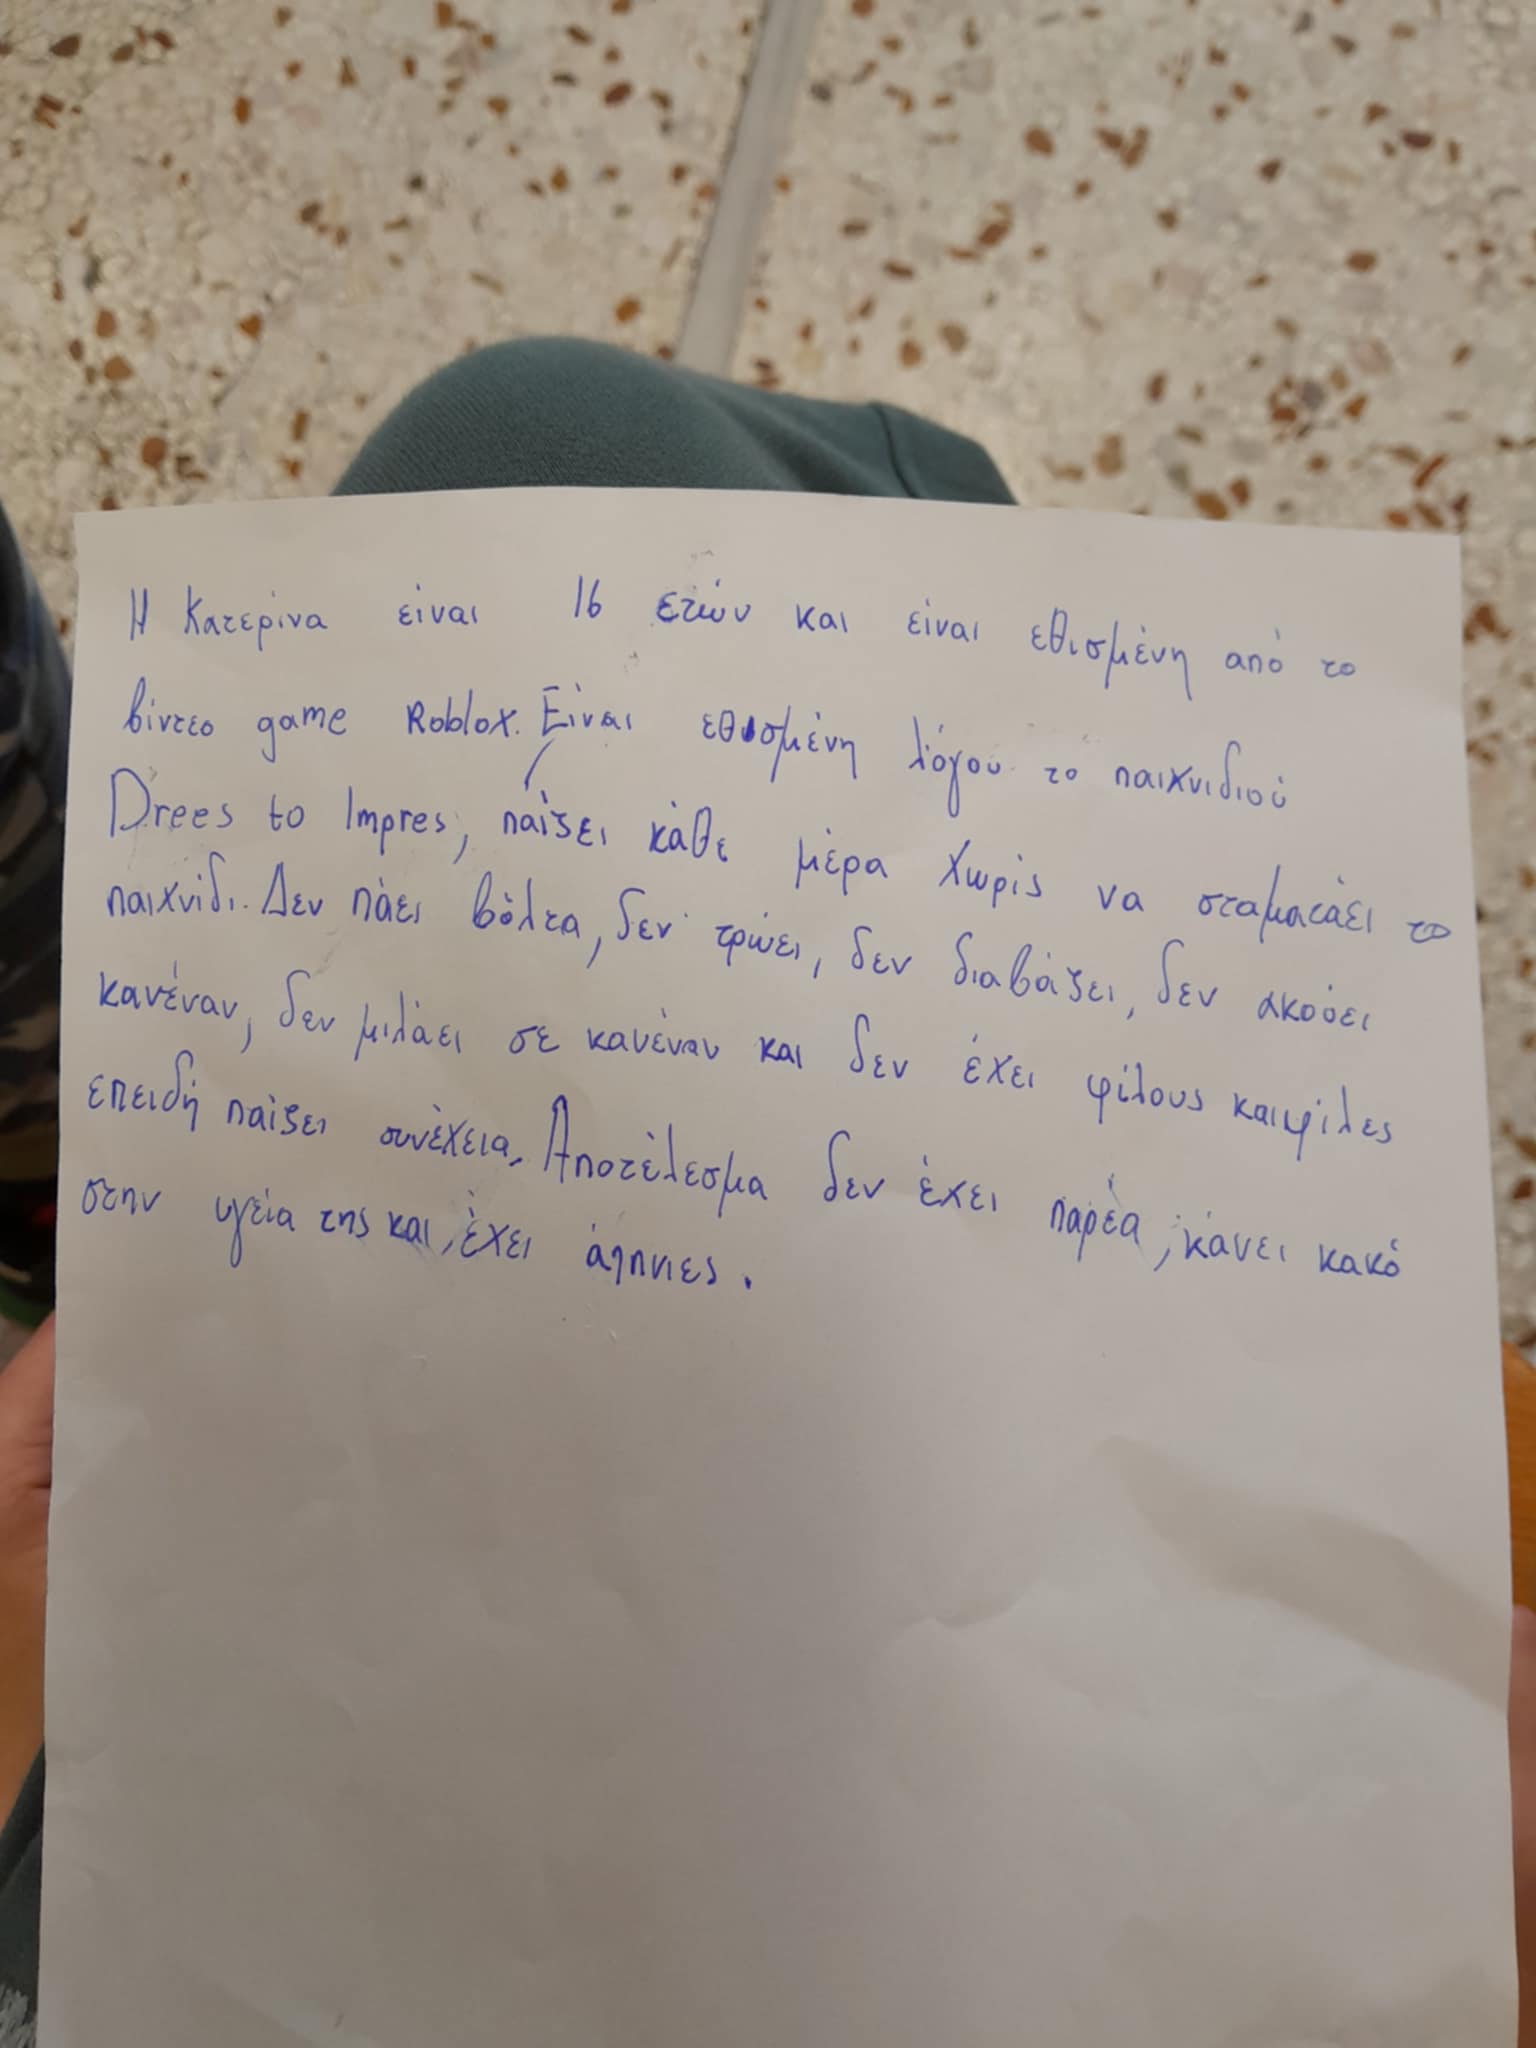 Η Κατερίνα είναι 16 ετών και είναι εθισμένη από το
βίντεο game Roblox. Είναι εθισμένη λόγου το παιχνιδιού
Drees to Impres, παίζει κάθε μέρα χωρίς να σταματάει το
παιχνίδι. Δεν πάει βόλτα, δεν τρώει, δεν διαβάζει, δεν ακούει
κανέναν, δεν μιλάει σε κανέναν και δεν έχει φίλους και φίλες
επειδή παίζει συνέχεια. Αποτέλεσμα δεν έχει παρέα, κάνει κακό
στην υγεία της και έχει άυπνιες.